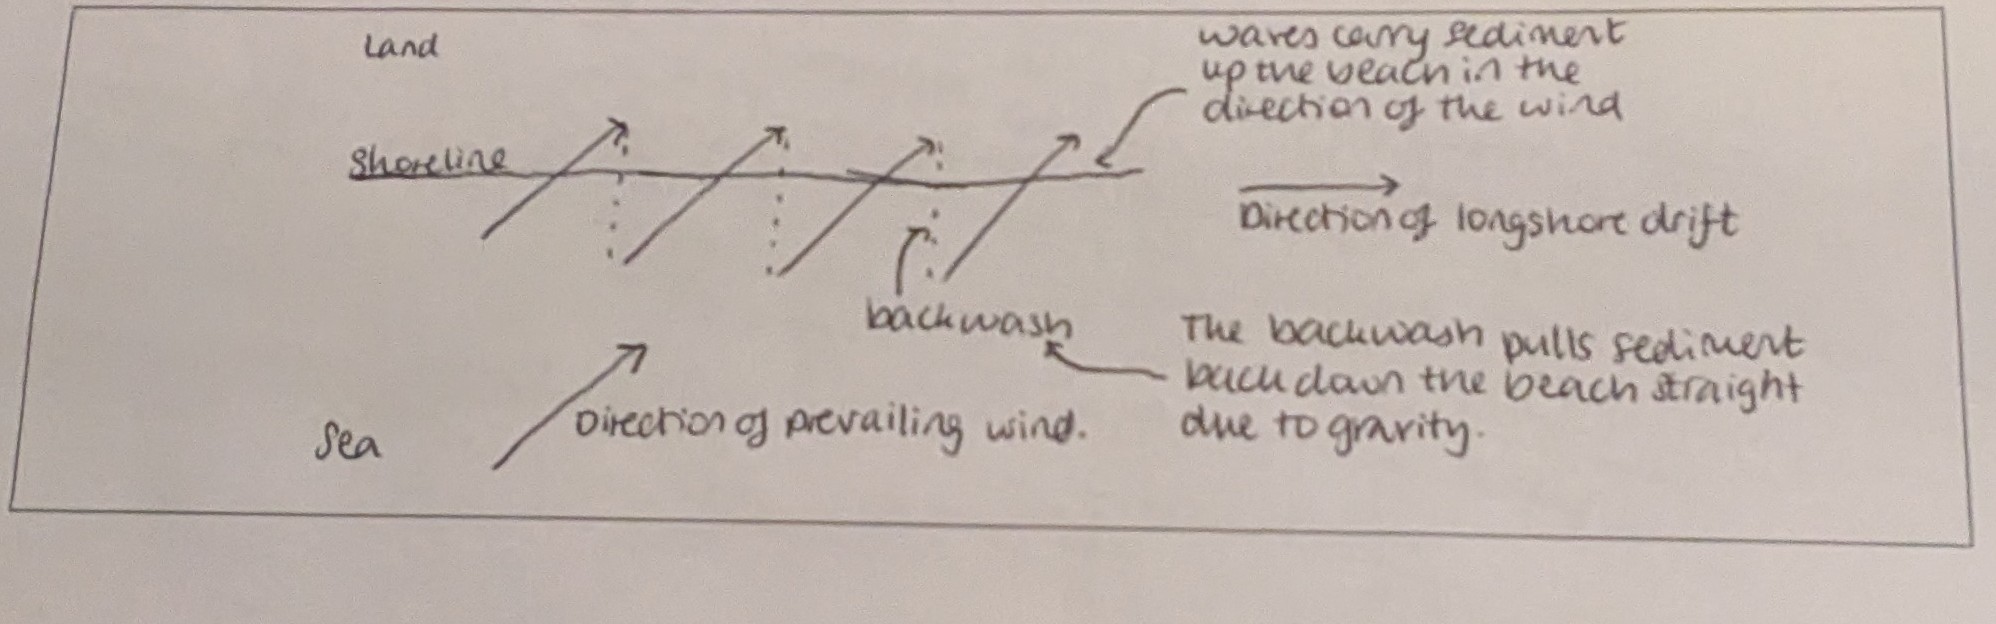 Land
waves carry sediment
up the beach in the
direction of the wind
Shoreline
Direction of longshore drift
backwash
The backwash pulls sediment
back down the beach straight
due to gravity.
Direction of prevailing wind.
Sea